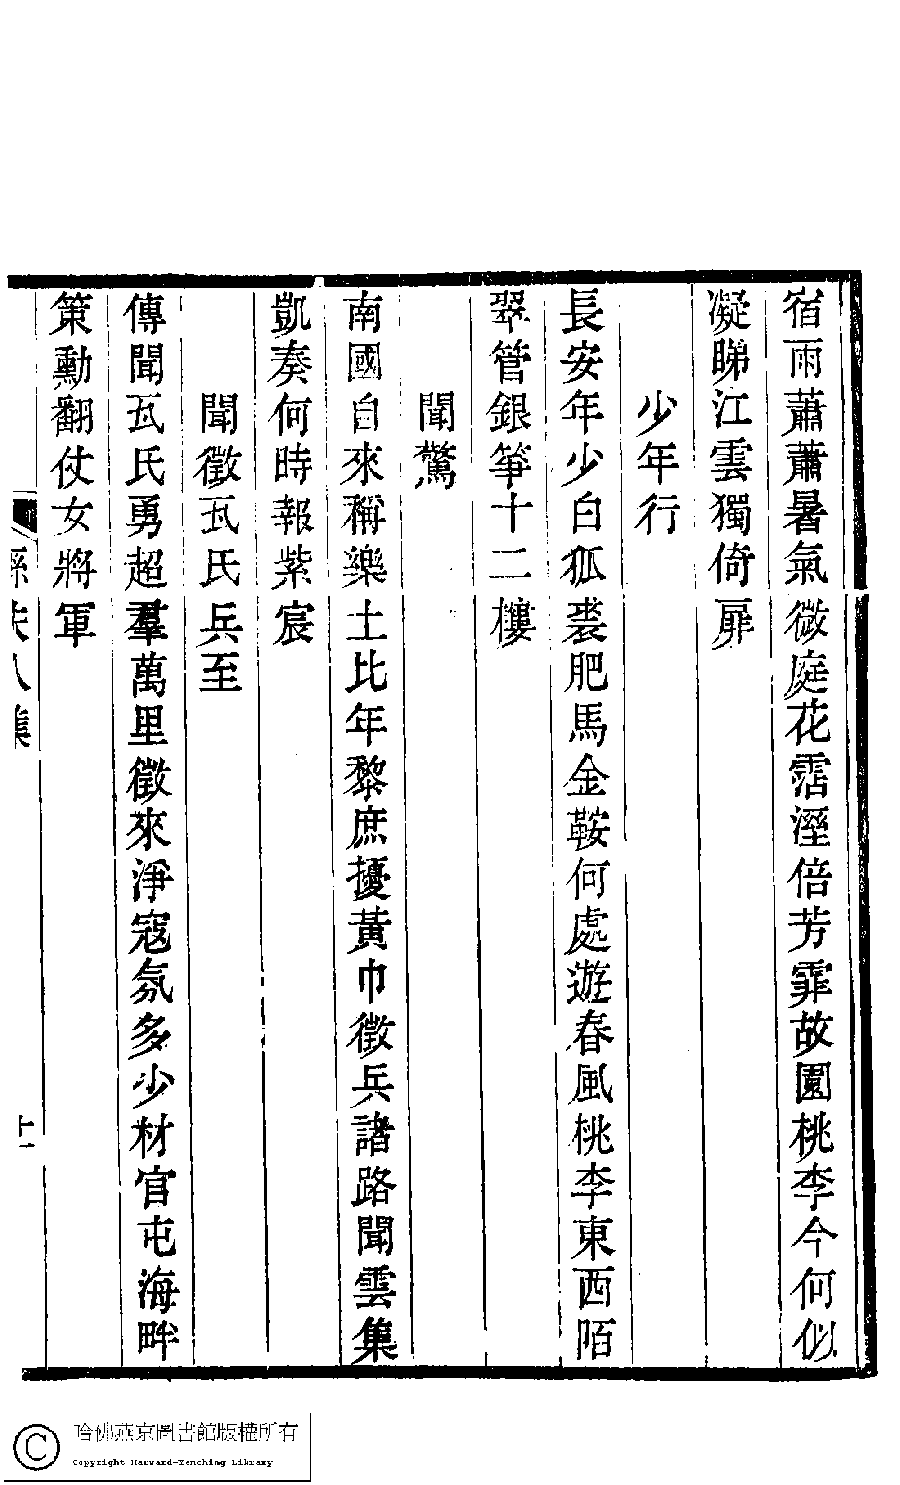 宿雨蕭蕭暑氣微庭花霑溼倍芳霏故園桃李今何似
凝睇江雲獨倚扉
少年行
長安年少白狐裘肥馬金鞍何處遊春風桃李東西陌
翠管銀箏十二樓
聞驚
南國自來稱樂土比年黎庶擾黃巾徵兵諸路聞雲集
凱奏何時報紫宸
聞徵瓦氏兵至
傳聞瓦氏勇超羣萬里徵來淨寇氛多少材官屯海畔
策勳翻仗女將軍
十一
哈佛燕京圖書館版權所有
Copyright Harvard-Yenching Library